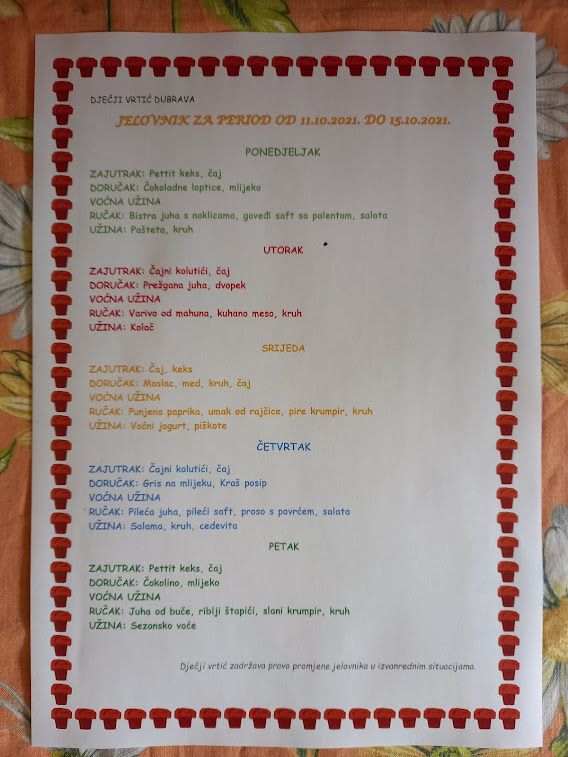 DJEČJI VRTIĆ DUBRAVA
JELOVNIK ZA PERIOD OD 11.10.2021. DO 15.10.2021.
PONEDJELJAK
ZAJUTRAK: Pettit keks, čaj
DORUČAK: Čokoladne loptice, mlijeko
VOĆNA UŽINA
RUČAK: Bistra juha s noklicama, goveđi saft sa palentom, salata
UŽINA: Pašteta, kruh
UTORAK
ZAJUTRAK: Čajni kolutići, čaj
DORUČAK: Prežgana juha, dvopek
VOĆNA UŽINA
RUČAK: Varivo od mahuna, kuhano meso, kruh
UŽINA: Kolač
SRIJEDA
ZAJUTRAK: Čaj, keks
DORUČAK: Maslac, med, kruh, čaj
VOĆNA UŽINA
RUČAK: Punjena paprika, umak od rajčice, pire krumpir, kruh
UŽINA: Voćni jogurt, piškote
ČETVRTAK
ZAJUTRAK: Čajni kolutići, čaj
DORUČAK: Gris na mlijeku, Kraš posip
VOĆNA UŽINA
RUČAK: Pileća juha, pileći saft, proso s povrćem, salata
UŽINA: Salama, kruh, cedevita
PETAK
ZAJUTRAK: Pettit keks, čaj
DORUČAK: Čokolino, mlijeko
VOĆNA UŽINA
RUČAK: Juha od buče, riblji štapići, slani krumpir, kruh
UŽINA: Sezonsko voće
Dječji vrtić zadržava pravo promjene jelovnika u izvanrednim situacijama.